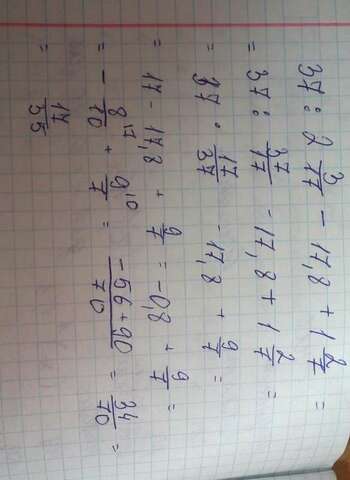 37 : 2 3/17 - 17,8 + 1 2/7 =
= 37 : 37/17 - 17,8 + 1 2/7 =
= 37 · 17/37 - 17,8 + 9/7 =
= 17 - 17,8 + 9/7 = -0,8 + 9/7 =
= - 8/10 ^7 + 9/7 ^10 = -56+90/70 = 34/70 =
= 17/35